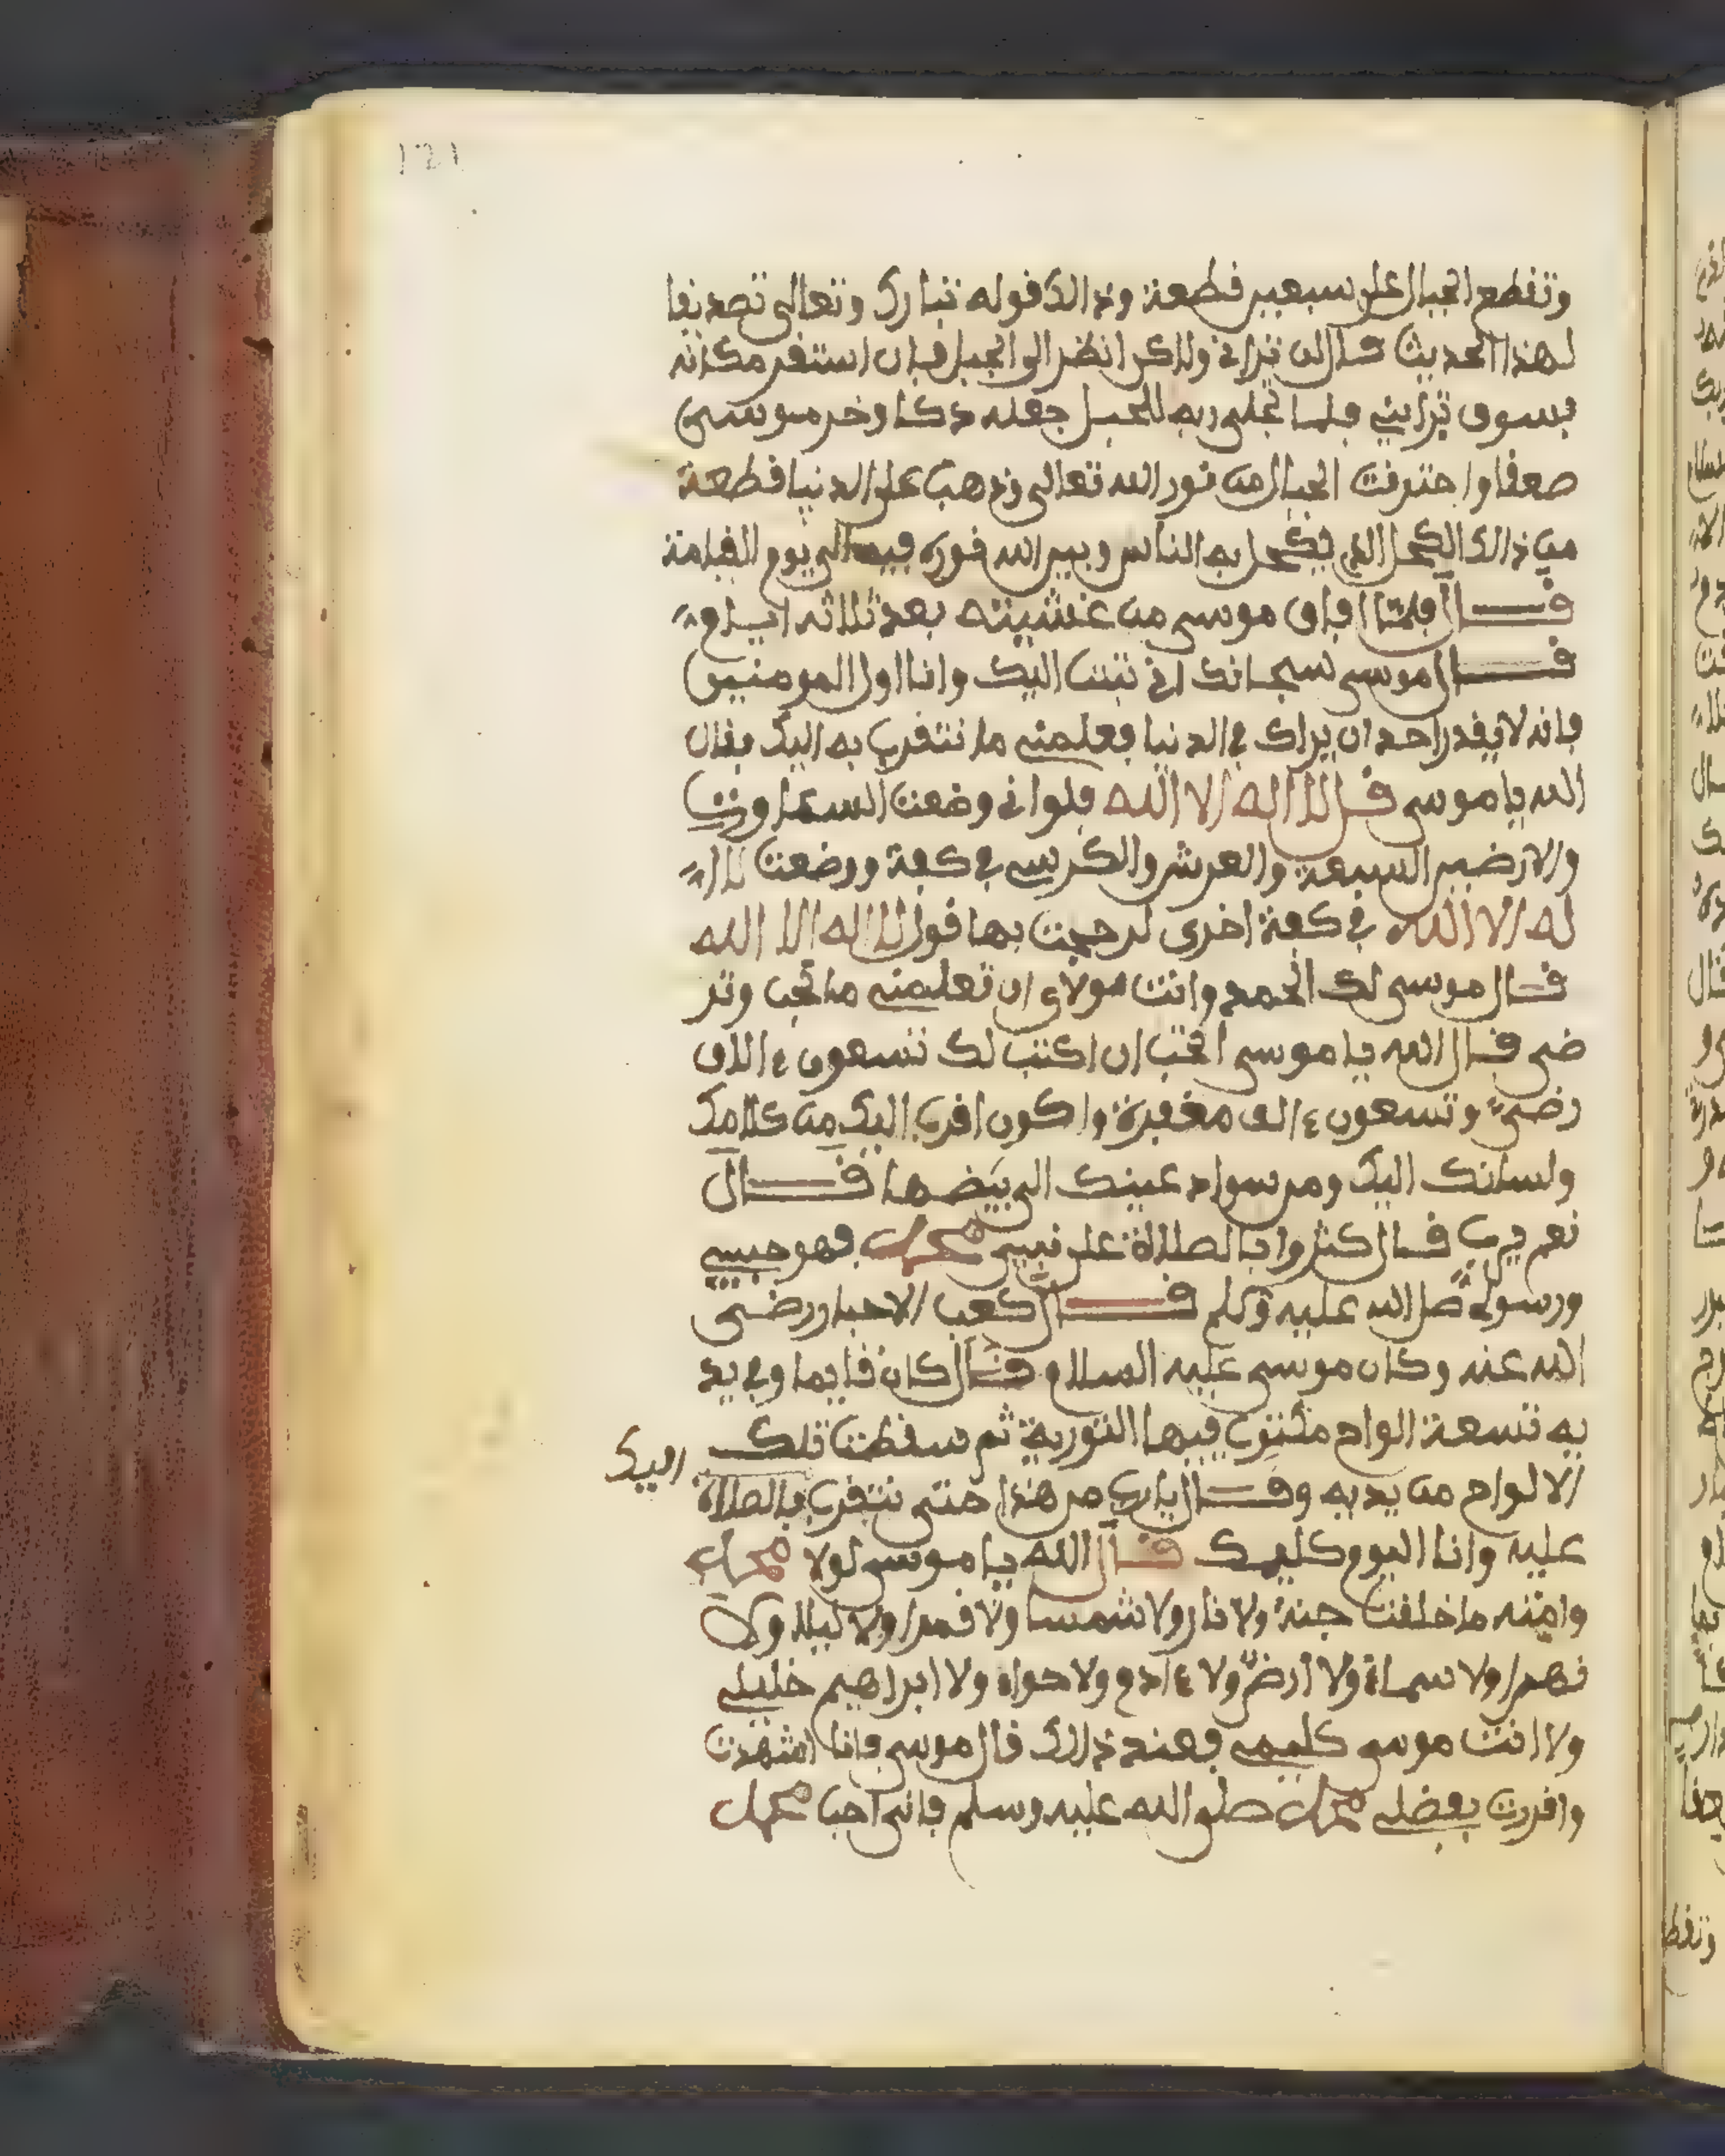 121
وتفطع الجبال على سبعين قطعة وذالك قوله تبارك وتعالى تصديقا
لهذا الحديث قال لن تراني ولاكن انظر الى الجبل فإن استقر مكانه
فسوف تراني فلما تجلى ربه للجبل جعله دكا وخر موسى
صعقا واحترقت الجبال من نور الله تعالى وذهب على الدنيا قطعة
من ذالك الكحل الذي يكحل به الناس وبين الله فيها الى يوم القيامة
قال فلما افاق موسى من غشيته بعد ثلاثه ايام
قال موسى سبحانك اني تبت اليك وانا اول المومنين
فانه لا يقدر احد ان يراك في الدنيا فعلمني ما نتقرب به اليك فقال
الله يا موسى قل لا اله الا الله فلو اني وضعت السماوات
والارضين السبعة والعرش والكرسي في كفة ووضعت لا ا
له الا الله في كفة اخرى لرجحت بها قول لا اله الا الله
قال موسى لك الحمد وانت مولاي ان تعلمني ما تحب وتر
ضى قال الله يا موسى اتحب ان اكتب لك تسعون ءالاف
رضى وتسعون ءالف مغفرة واكون اقرب اليك من كلامك
ولسانك اليك ومن سواد عينك الى بيضها قال
نعم يرب قال كثروا بالصلاة على نبيي محمد فهو حبيبي
ورسولي صلى الله عليه وسلم قال كعب الاحبار رضى
الله عنه وكان موسى عليه السلام قال كان قايما وفي يد
يه تسعة الواح مكتوب فيها التورية ثم سقطت تلك
الالواح من يديه وقال يارب من هذا حتى نتقرب بالصلاة اليك
عليه وانا اليوم كليمك قال الله يا موسى لولا محمد
وامته ما خلقت جنة ولا نار ولا شمسا ولا قمرا ولا ليلا ولا
نهرا ولا سماء ولا ارض ولا ءادم ولا حواء ولا ابراهيم خليلي
ولا انت موسى كليمي فعند ذالك قال موسى فانا اشهدت
واقررت بفضلي محمد صلى الله عليه وسلم فاني احب محمد